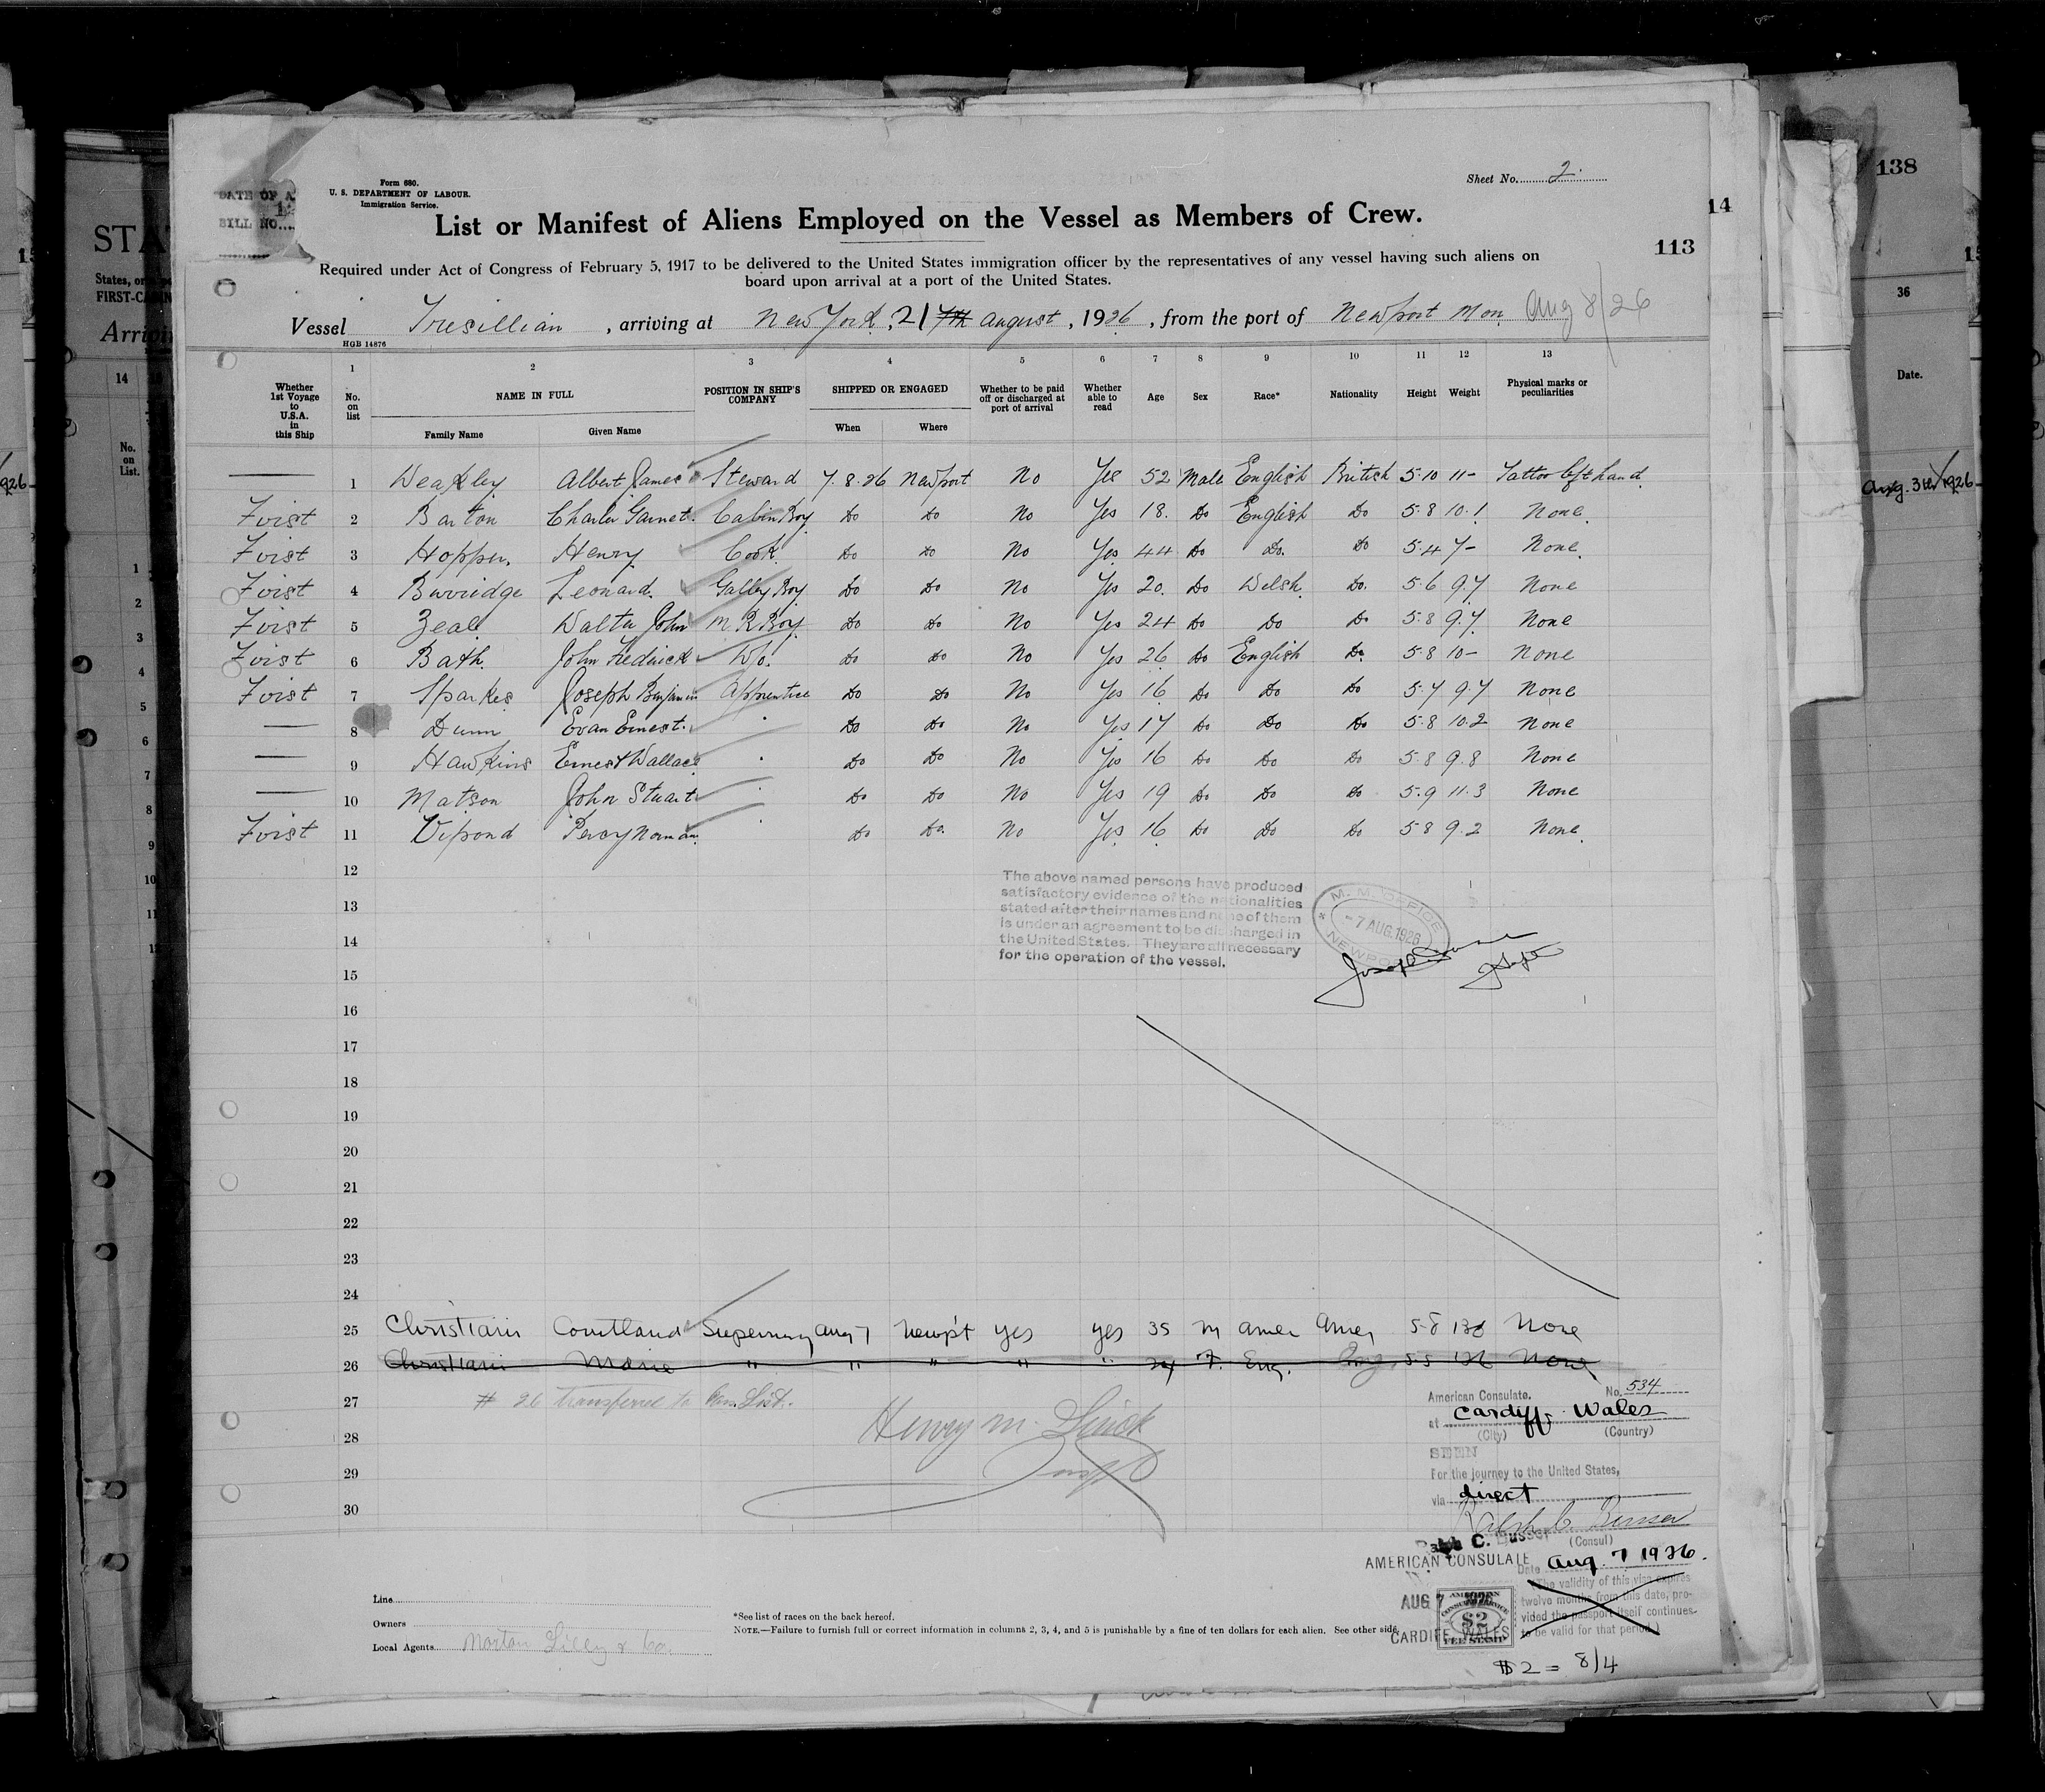 Form 680.
U. S. DEPARTMENT OF LABOUR.
Immigration Service.
DATE OF A
BILL NO....
Sheet No. 2.
List or Manifest of Aliens Employed on the Vessel as Members of Crew.
14
113
138
Required under Act of Congress of February 5, 1917 to be delivered to the United States immigration officer by the representatives of any vessel having such aliens on
board upon arrival at a port of the United States.
Vessel Tresillian, arriving at New York, 21 7th August, 1926, from the port of Newport Mon Aug 8/26
HGB 14876
1 2 3 4 5 6 7 8 9 10 11 12 13
Whether 1st Voyage to U.S.A. in this Ship No. on list NAME IN FULL Family Name Given Name POSITION IN SHIP'S COMPANY SHIPPED OR ENGAGED When Where Whether to be paid off or discharged at port of arrival Whether able to read Age Sex Race* Nationality Height Weight Physical marks or peculiarities
— 1 Weakley Albert James Steward 7.8.26 Newport No Yes 52 Male English British 5.10 11- Tattoo left hand
Foist 2 Barton Charles Garnet. Cabin Boy Do Do No Yes 18. Do English Do 5.8 10.1 None.
Foist 3 Hopper, Henry Cook Do Do No Yes 44 Do Do. Do 5.4 7- None.
Foist 4 Burridge Leonard. Galley Boy Do Do No Yes 20. Do Welsh. Do. 5.6 9.7 None
Foist 5 Zeal Walter John M R Boy. Do Do No Yes 24 Do Do Do 5.8 9.7 None
Foist 6 Bath. John Fredrick W/o. Do Do No Yes 26 Do English Do 5.8 10- None
Foist 7 Sparkes Joseph Benjamin Apprentice Do Do No Yes 16 Do Do Do 5.7 9.7 None
— 8 Dunn Evan Ernest. " Do Do No Yes 17 Do Do Do 5.8 10.2 None
— 9 Hawkins Ernest Wallace " Do Do No Yes 16 Do Do Do 5.8 9.8 None
— 10 Matson John Stuart " Do Do No Yes 19 Do Do Do 5.9 11.3 None
Foist 11 Vipond Percy Norman. " Do Do. No Yes 16 Do Do Do 5.8 9.2 None.
12
The above named persons have produced
satisfactory evidence of the nationalities
stated after their names and none of them
is under an agreement to be discharged in
the United States. They are all necessary
for the operation of the vessel.
M. M. OFFICE
-7 AUG.1926
NEWPORT
Joseph
13
14
15
16
17
18
19
20
21
22
23
24
25 Christian Courtland Supernury Aug 7 Newp't yes yes 35 M Amer Amer 5-8 138 None
26 Christian Marie " " " " " 24 F. Eng. Eng. 5-5 126 None
27 # 26 transferred to Pass. List.
28 Henry M.
29
30
American Consulate. No. 534
at Cardiff, Wales
(City) (Country)
SEEN
For the journey to the United States,
via direct
Ralph C. Busser
Ralph C. Busser (Consul)
AMERICAN CONSULATE
Date Aug. 7 1926.
The validity of this visa expires
twelve months from this date, pro-
vided the passport itself continues
to be valid for that period.)
AUG 7 1926
CARDIFF, WALES
AMERICAN
CONSULAR SERVICE
$2
FEE STAMP
$2 = 8/4
Line
Owners
Local Agents Norton Lilly & Co.
*See list of races on the back hereof.
NOTE.—Failure to furnish full or correct information in columns 2, 3, 4, and 5 is punishable by a fine of ten dollars for each alien. See other side.
36
Date.
Aug. 3rd/1926
STA
States, or
FIRST-CABIN
Arrivin
14
No.
on
List.
1
2
3
4
5
6
7
8
9
10
11